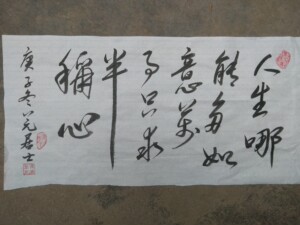 人生哪
能多如
意万
事只求
半
称心
庚子冬八元居士